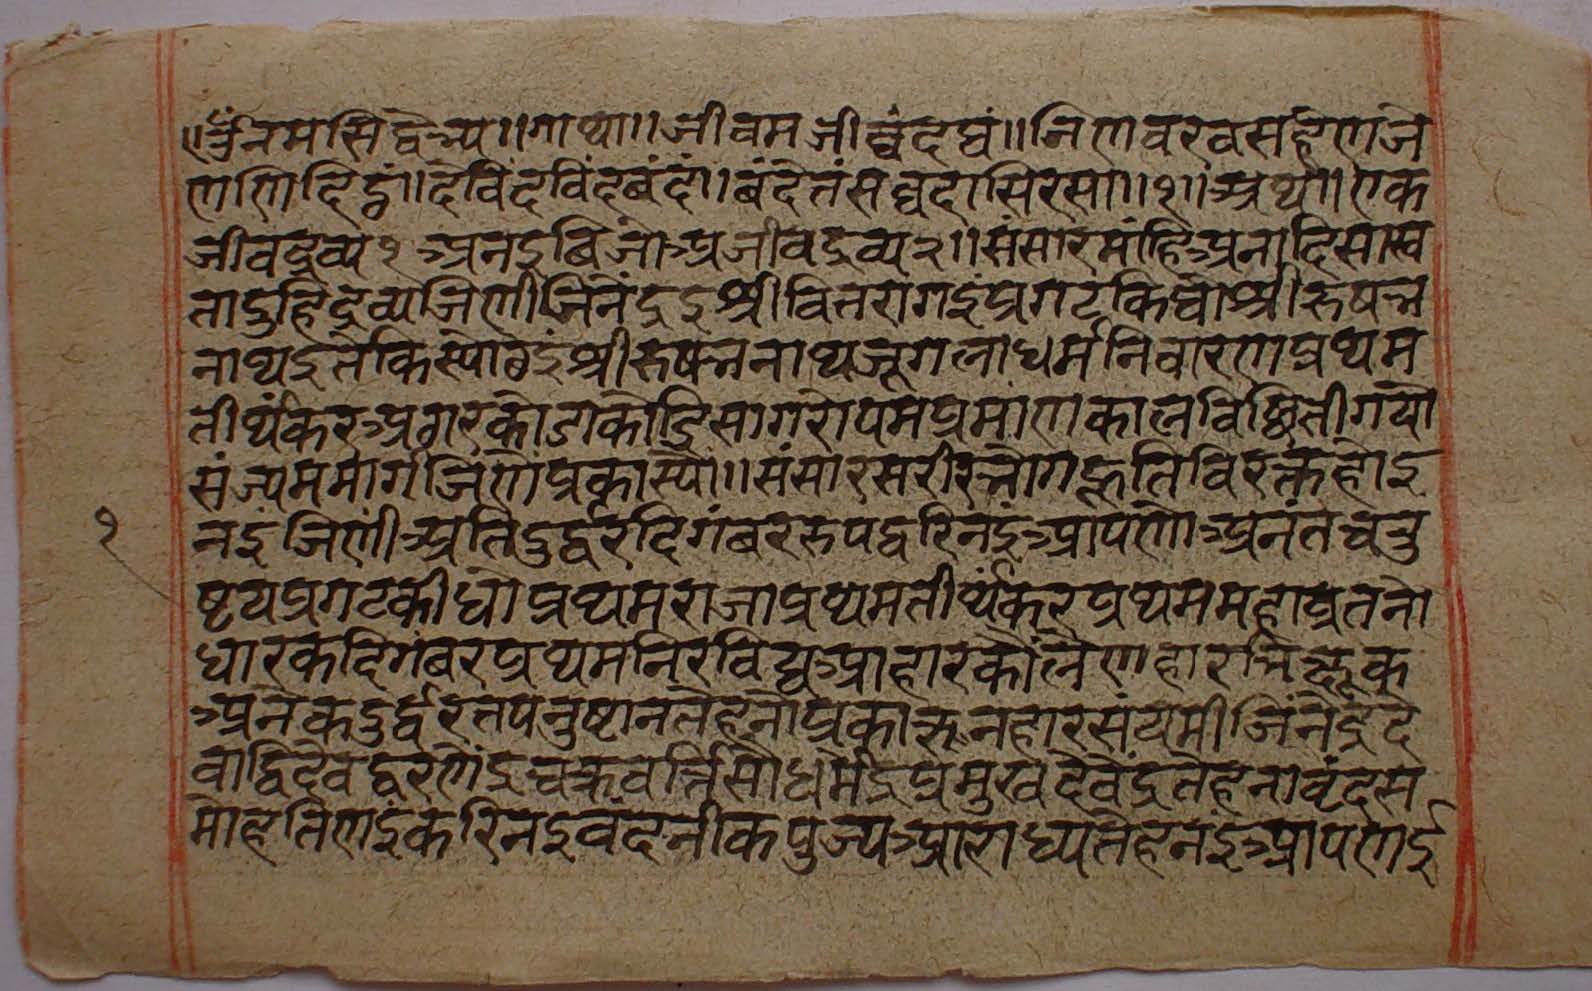 ॥ॐनमसिद्वेभ्य॥गाथा॥जीवमजीवंदव्वं॥जिणवरवसहेणजे
णणिदिठ्ठं॥देविंदविंदबंदं॥बंदेतंसव्वदासिरसा॥१॥अर्थ॥एक
जीवद्रव्य१अनइबिजोअजीवद्रव्य२॥संसारमांहिअनादिसास्व
तादुहिद्रव्यजिणीजिनेंद्रइश्रीवितरागइंप्रगटकिधोश्रीरुषभ
नाथइतेकिस्योछइंश्रीरुषभनाथजूगलाधर्मनिवारणप्रथम
तीर्थंकरअढारकोडाकोडिसागरोपमप्रमाणकालविछितीगयो
संज्यममार्गजिणेंप्रकास्यो॥संसारसरीरभोगहूतिविरक्तहोइ
नइंजिणीअतिदुर्द्वरदिगंबररुपद्वरिनइंआपणोअनंतचतु
ष्टयप्रगटकीधोप्रथमराजाप्रथमतीर्थंकरप्रथममहाव्रतनो
धारकदिगंबरप्रथमनिरविद्यआहारकोलेणहारभिक्षूक
अनेकदुर्द्वरतपनुष्टानतेहनोप्रकासनहारसंयमीजिनेंद्रदे
वाद्विदेवद्वरणेंद्रचक्रवर्त्तिसोधर्मेंद्रप्रमुखदेवेंद्रतेहनावृंदस
मोहतिणइंकरिनइवंदनीकपुज्यआराध्यतेहनइंआपणइ
१